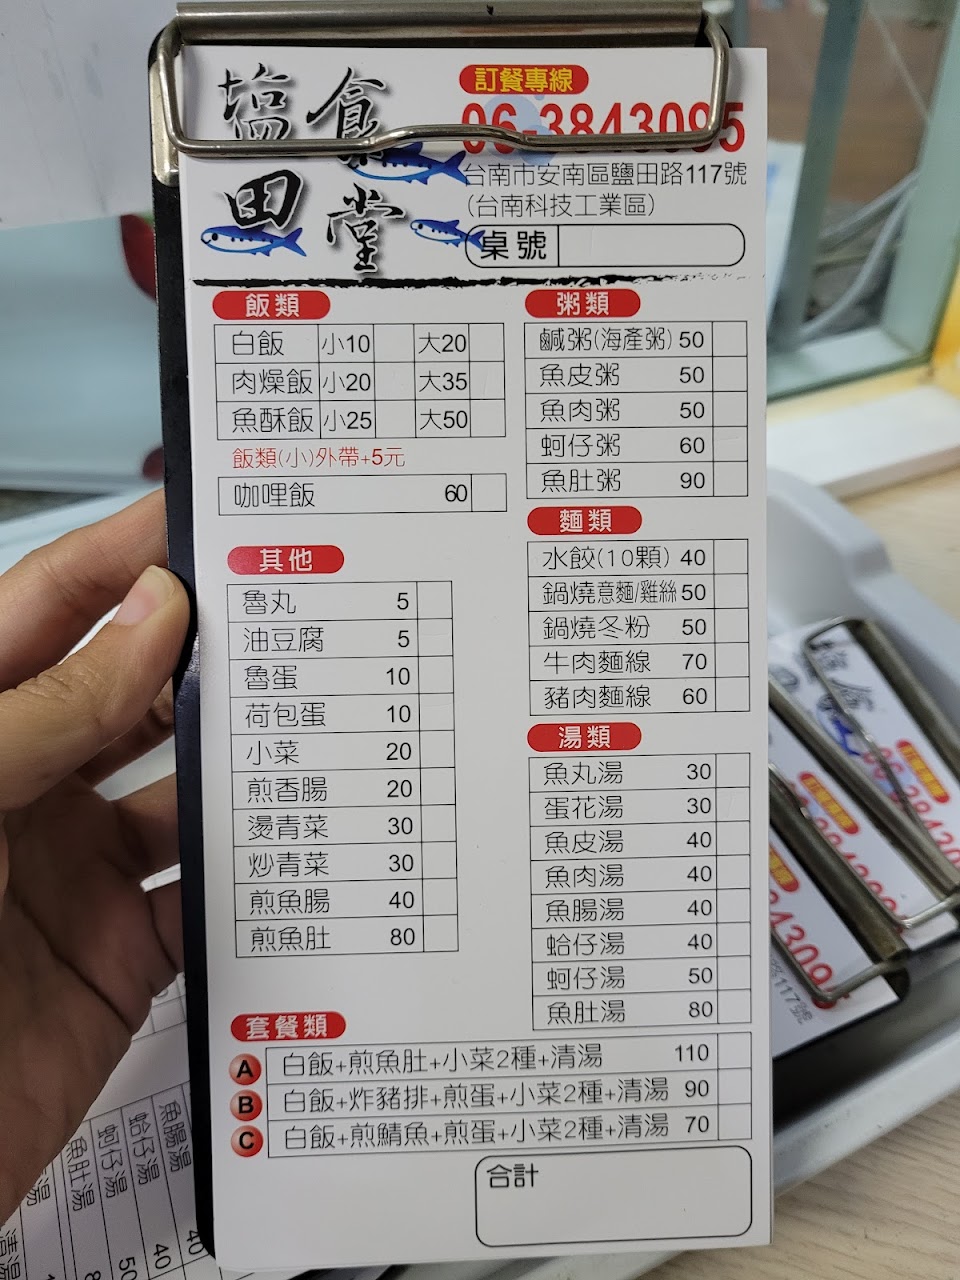 塩田食堂
訂餐專線
06-3843095
台南市安南區鹽田路117號
(台南科技工業區)
桌號
飯類
白飯 小10 大20
肉燥飯 小20 大35
魚酥飯 小25 大50
飯類(小)外帶+5元
咖哩飯 60
其他
魯丸 5
油豆腐 5
魯蛋 10
荷包蛋 10
小菜 20
煎香腸 20
燙青菜 30
炒青菜 30
煎魚腸 40
煎魚肚 80
粥類
鹹粥(海產粥) 50
魚皮粥 50
魚肉粥 50
蚵仔粥 60
魚肚粥 90
麵類
水餃(10顆) 40
鍋燒意麵/雞絲 50
鍋燒冬粉 50
牛肉麵線 70
豬肉麵線 60
湯類
魚丸湯 30
蛋花湯 30
魚皮湯 40
魚肉湯 40
魚腸湯 40
蛤仔湯 40
蚵仔湯 50
魚肚湯 80
套餐類
A 白飯+煎魚肚+小菜2種+清湯 110
B 白飯+炸豬排+煎蛋+小菜2種+清湯 90
C 白飯+煎鯖魚+煎蛋+小菜2種+清湯 70
合計
魚腸湯 40
蛤仔湯 40
蚵仔湯 50
魚肚湯
清湯
06-38430
路117號